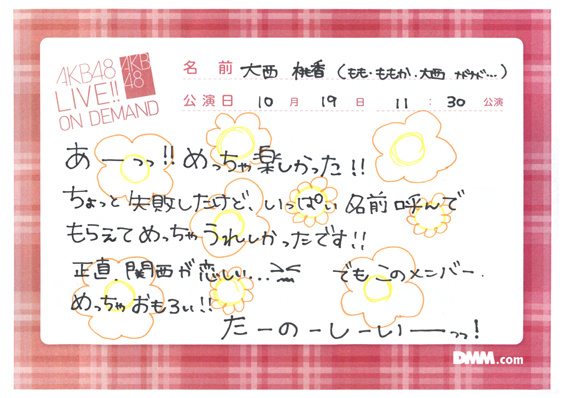 AKB48
LIVE!!
ON DEMAND
AKB
48
名前 大西 桃香 (もも・ももか・大西 がが…)
公演日 10月 19日 11:30公演
あーっっ!! めっちゃ楽しかった!!
ちょっと失敗したけど、いっぱい名前呼んで
もらえてめっちゃうれしかったです!!
正直、関西が恋しい... でもこのメンバー.
めっちゃおもろい!!
たーのーしーいーっっ!
DMM.com